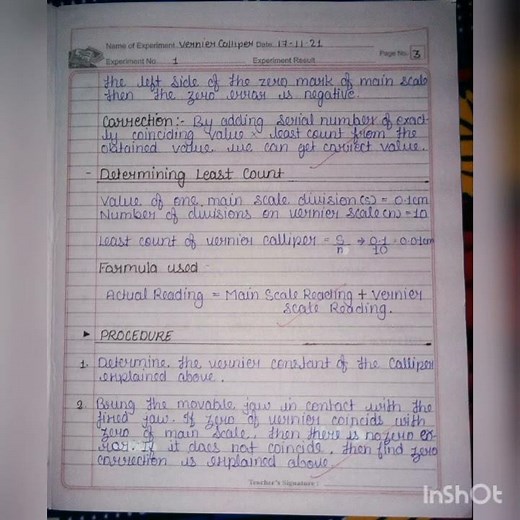 Name of Experiment Vernier Calliper Date: 17-11-21
Page No. 3
Experiment No. 1 Experiment Result
the left side of the zero mark of main scale
then the zero error is negative.
Correction:- By adding serial number of exact
ly coinciding value × least count from the
obtained value. we can get correct value.
- Determining Least Count
Value of one main scale division(s) = 0.1cm
Number of divisions on vernier scale(n) = 10
Least count of vernier calliper = S/n → 0.1/10 = 0.01cm
Formula used
Actual Reading = Main Scale Reading + Vernier
Scale Reading.
► PROCEDURE
1. Determine the vernier constant of the Calliper
explained above.
2. Bring the movable jaw in contact with the
fixed jaw. If zero of vernier coincids with
zero of main scale, then there is no zero er-
ror. If it does not coincide, then find zero
correction is explained above.
Teacher's Signature :
InShOt